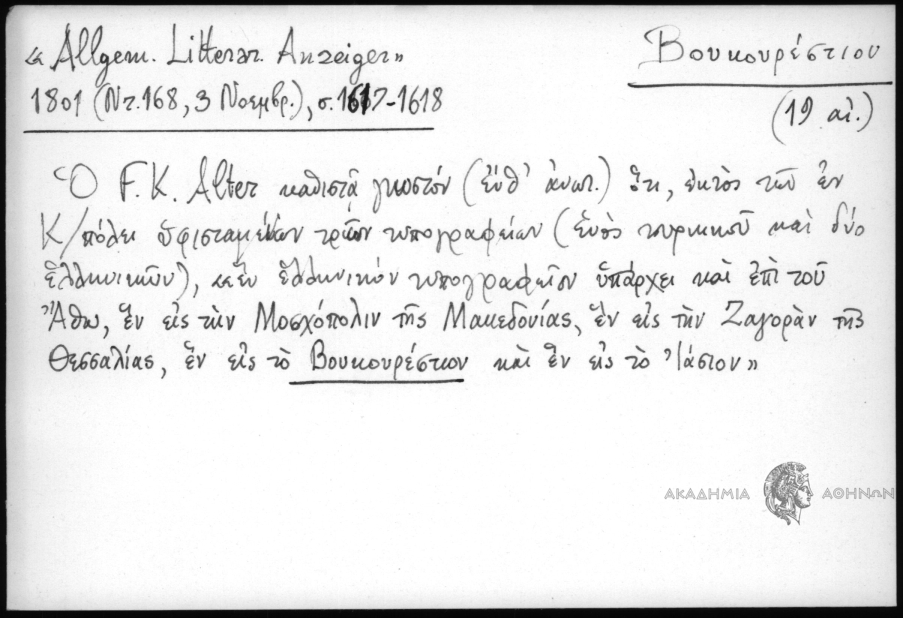 «Allgem. Litterar. Anzeiger»
1801 (Nr. 168, 3 Νοεμβρ.), σ. 1617-1618
Βουκουρέστιον
(19 αἰ.)
Ὁ F. K. Alter καθιστᾷ γνωστόν (ἔνθ' ἀνωτ.) ὅτι, ἐκτὸς τῶν ἐν
Κ/πόλει ὑφισταμένων τριῶν τυπογραφείων (ἑνὸς τουρκικοῦ καὶ δύο
ἑλληνικῶν), «ἓν ἑλληνικόν τυπογραφεῖον ὑπάρχει καὶ ἐπὶ τοῦ
Ἄθω, ἓν εἰς τὴν Μοσχόπολιν τῆς Μακεδονίας, ἓν εἰς τὴν Ζαγορὰν τῆς
Θεσσαλίας, ἓν εἰς τὸ Βουκουρέστιον καὶ ἓν εἰς τὸ Ἰάσιον»
ΑΚΑΔΗΜΙΑ ΑΘΗΝΩΝ